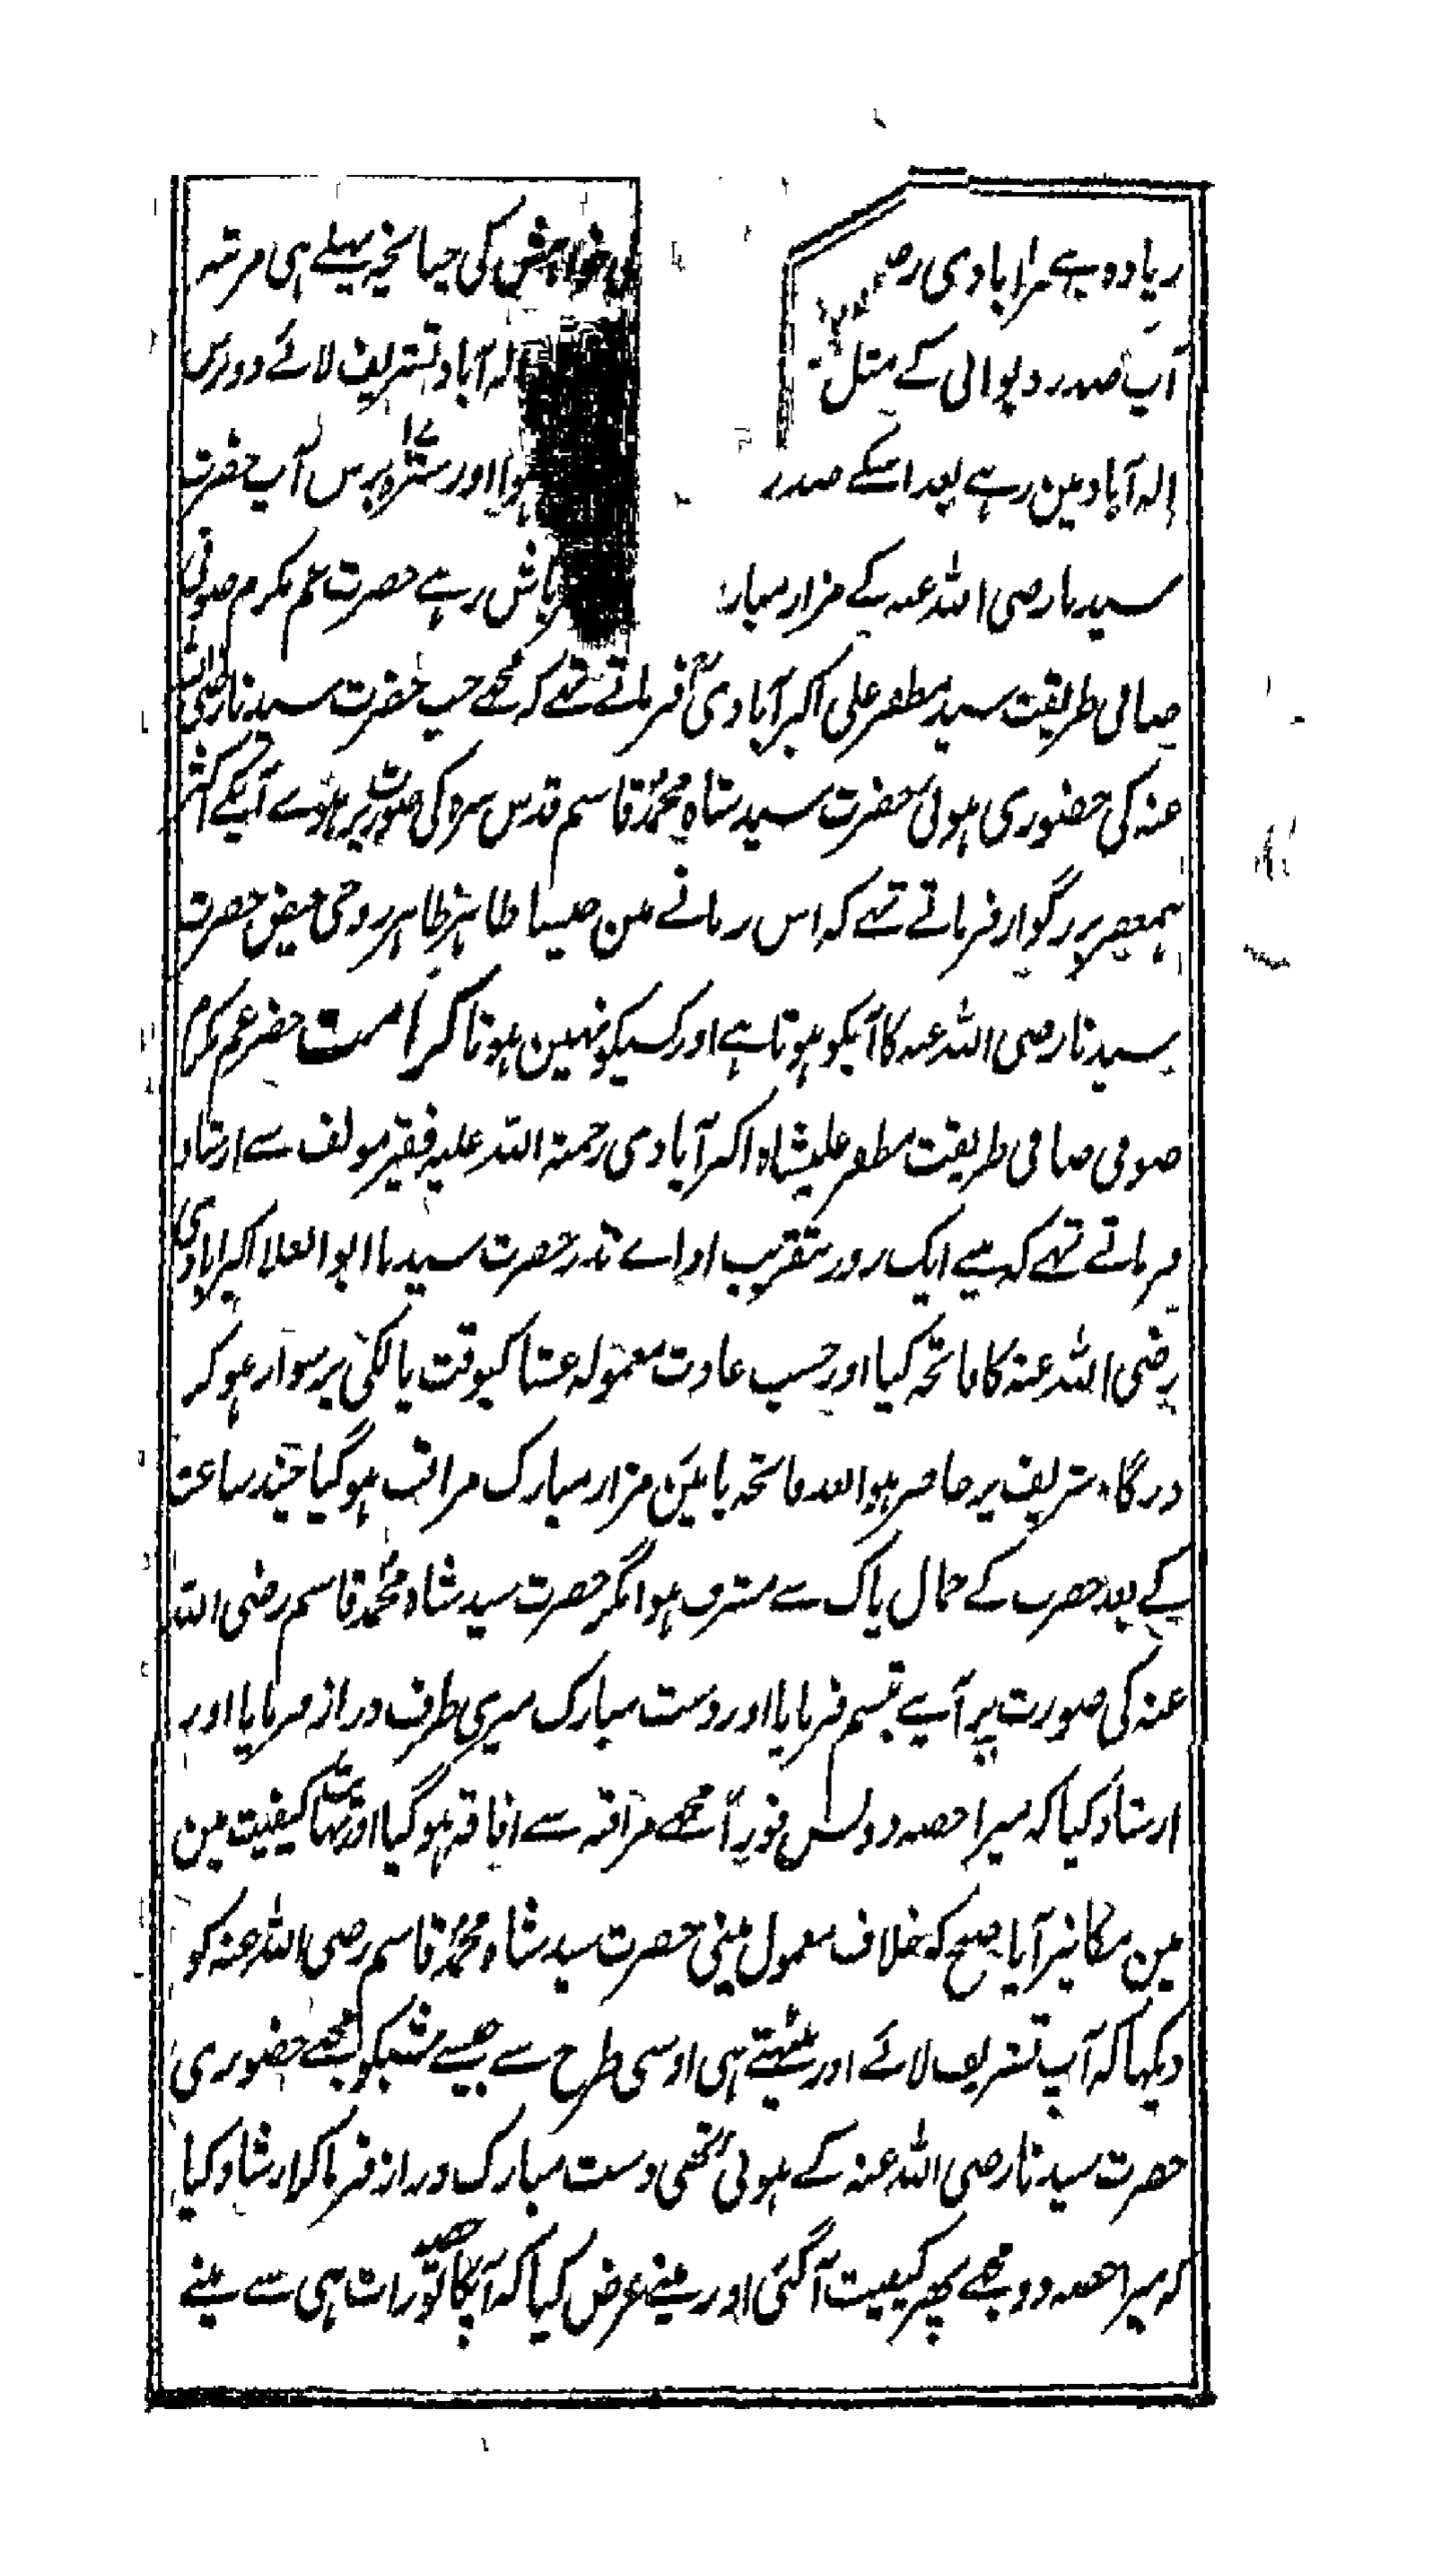 زیادہ ہے اکبرآبادی خواہش کی چنانچہ پہلے ہی مرتبہ
آپ صدر دیوانی کے مثل الہ آباد تشریف لائے دو برس
الہ آباد مین رہے بعد اسکے صدر ہوا اور سترہ ۱۷ برس آپ حضرت
سیدنا رضی اللہ عنہ کے مزار مبارک باش رہے حضرت عم مکرم صوفی
صافی طریقت سید مظفر علی اکبرآبادی فرماتے تھے کہ مجھے جب حضرت سیدنا رضی اللہ
عنہ کی حضوری ہوئی حضرت سید شاہ محمد قاسم قدس سرہ کی صورت پر ہوئے آپکے اکثر
ہمعصر بزرگوار فرماتے تھے کہ اس زمانے مین جیسا ظاہر ظاہر روحی فیض حضرت
سیدنا رضی اللہ عنہ کا آپکو ہوتا ہے اور کسیکو نہین ہوتا کرامت حضرت عم مکرم
صوفی صافی طریقت مظفر علیشاہ اکبرآبادی رحمتہ اللہ علیہ فقیر مولف سے ارشاد
فرماتے تھے کہ مینے ایک روز بتقریب اداے نذر حضرت سیدنا ابوالعلا اکبرابادی
رضی اللہ عنہ کا فاتحہ کیا اور حسب عادت معمولہ عشا کیوقت پالکی پر سوار ہو کر
درگاہ شریف پر حاضر ہوا بعد فاتحہ پائین مزار مبارک مراقب ہو گیا چند ساعت
کے بعد حضرت کے جمال پاک سے مشرف ہوا مگر حضرت سید شاہ محمد قاسم رضی اللہ
عنہ کی صورت پر آپنے تبسم فرمایا اور دست مبارک میری طرف دراز فرمایا اور
ارشاد کیا کہ میرا حصہ دو بس فوراً مجھے مراقبہ سے افاقہ ہو گیا اور تنہا کیفیت مین
مین مکانپر آیا صبح کو خلاف معمول مینے حضرت سید شاہ محمد قاسم رضی اللہ عنہ کو
دیکھا کہ آپ تشریف لائے اور بیٹھتے ہی اوسی طرح سے جیسے شبکو مجھے حضوری
حضرت سیدنا رضی اللہ عنہ کے ہوئی تھی دست مبارک دراز فرما کر ارشاد کیا
کہ میرا حصہ دو مجھے پھر کیفیت آگئی اور مینے عرض کیا کہ آپکا حصہ تو رات ہی سے مینے